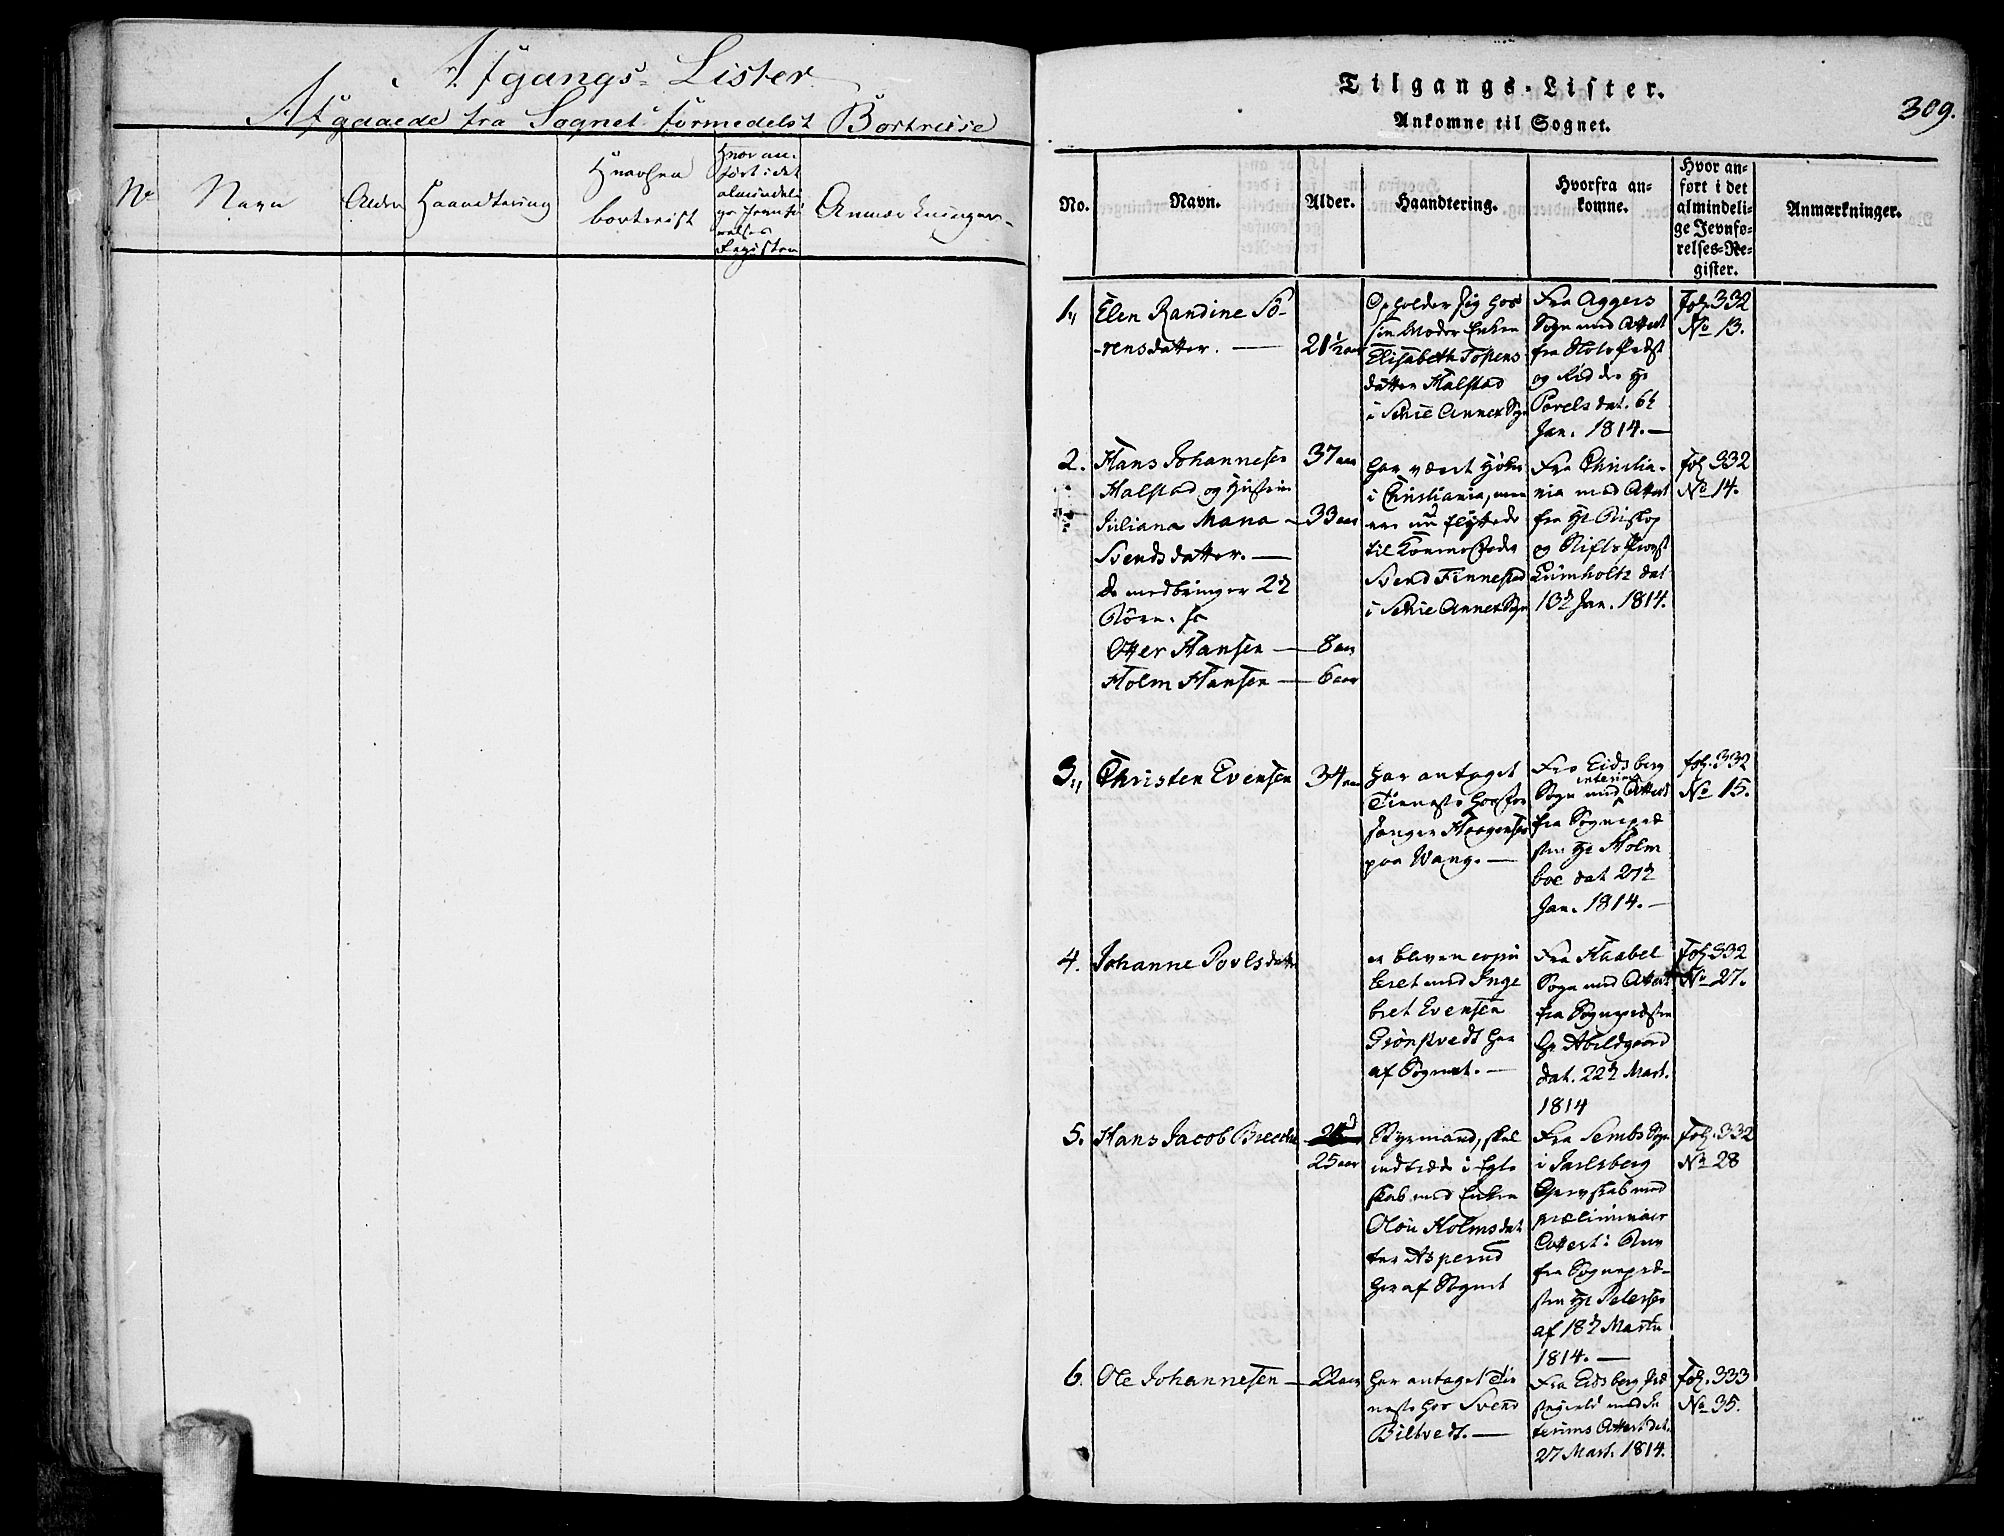 Afgangs-Lister
Afgaaede fra Sognet formedelst Bortreise
No
Navn
Alder
Haandtering
Hvorhen
bortreist
Hvor an-
ført i det
almindeli-
ge Jevnfø-
relses
Register
Anmærkninger
Tilgangs-Lister.
309.
Ankomne til Sognet.
No.
Navn.
Alder.
Haandtering.
Hvorfra an-
komne.
Hvor an-
ført i det
almindeli-
ge Jevnfø-
relses-Re-
gister.
Anmærkninger.
1,,
Elen Randine Sö-
rensdatter. —
21 1/2 aar
Opholder sig hos
sin Moder Enken
Elisabeth
datter Halstad
i Schie Annex Sogn
Fra Aggers
Sogn med Attest
fra
og Ridder Hr
Pavels dat. 6t
Jan. 1814. —
fol. 332
No 13.
2.
Hans Johannesen
Halstad og Hustrue
Juliana Maria —
Svendsdatter. —
De medbringer 2de
Börn. s:
Otter Hansen —
Holm Hansen —
37 aar
33 aar
8 aar
6 aar
har været
i Christiania, men
nu flyttede
til
Svend Finnestad
i Schie Annex Sogn
Fra Christia-
nia med Attest
fra Hr Biskop
og Stiftsprovst
Lumholtz dat
13de Jan. 1814.
fol. 332
No 14.
3,,
Christen Evensen
34 aar
har antaget
Tieneste hos
Haagensen
paa Wang. —
Fra Eidsberg
interims
Sogn med Attest
fra Sognepræ
sten Hr Holm
boe dat 27de
Jan. 1814. —
fol. 332
No 15.
4.
Johanne Povlsdatter
er bleven copu
leret med Inge
bret Evensen
Grönstvedt her
af Sognet. —
Fra Haabel
Sogn med Attest
fra Sognepræsten
Hr Abildgaard
dat. 22de Mart.
1814
fol. 332
No 27.
5.
Hans Jacob
25 aar
Styrmand, skal
indtræde i Egte
skab med Enken
Holmsdat
ter Asperud
her af Sognet
Fra Sembs Sogn
i Jarlsberg
Grevskab med
præliminair
Attest
fra Sognepræ-
sten Hr Petersen
af 18de Martii
1814. —
fol. 332
No 28
6.
Ole Johannesen —
22 aar
har antaget Tie
neste hos Svend
Biltvedt. —
Fra Eidsberg Præ
stegield med In
terims Attest dat.
27 Mart. 1814.
fol. 333
No 35.